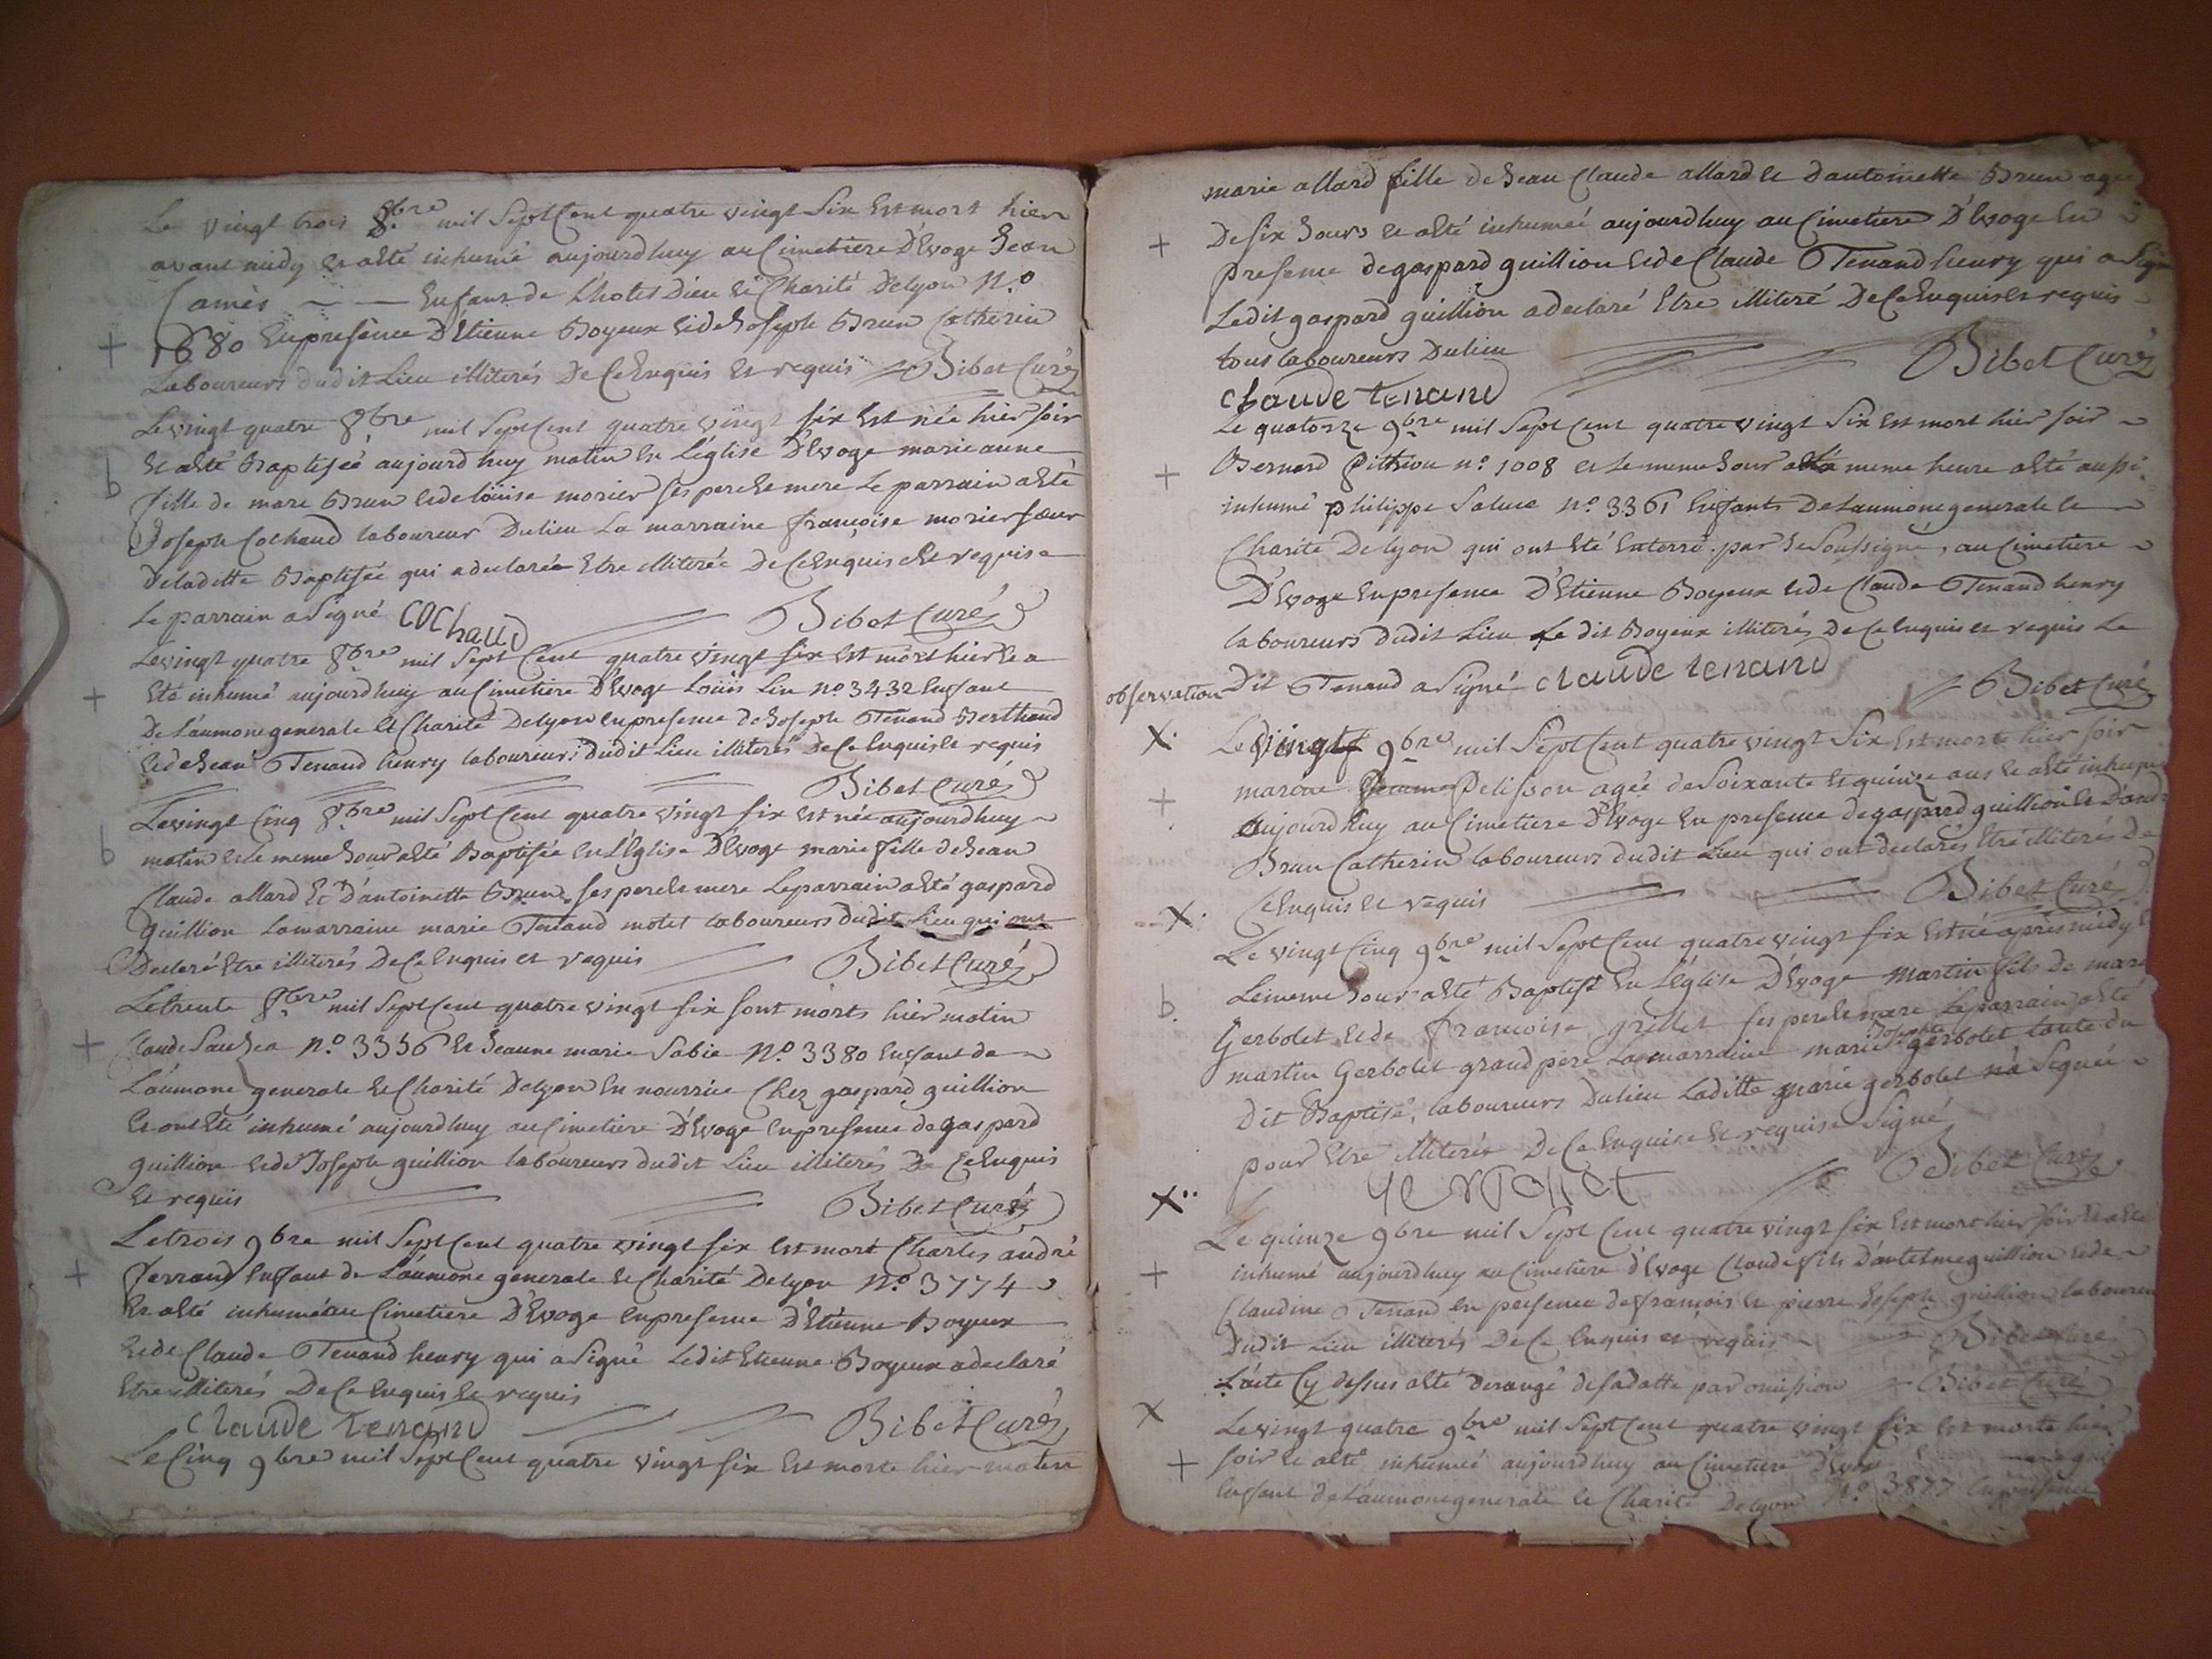 Le vingt trois 8bre mil Sept Cent quatre vingt Six Est mort hier
avant midy et a Eté inhumé aujourdhuy au Cimetiere D'Evoge Jean
Camès Enfant de L'hotel Dieu et Charité De lyon N.o
+ 1680 En presence D'Etienne Boyeux et de Joseph Brun Catherin
Laboureurs dudit Lieu illiterés De Ce Enquis et requis Bibet Curé
Le vingt quatre 8bre mil Sept Cent quatre vingt six Est née hier soir
b Et a Eté Baptisée aujourdhuy matin En L'église D'Evoge marie anne
fille de marc Brun et de Loüise morier ses pere et mere Le parrain a Eté
Joseph Cochaud laboureur Du lieu La marraine françoise morier sœur
De laditte Baptisée qui a declarée Etre illiterée De Ce Enquise Et requise
Le parrain a Signé COChauD Bibet Curé
Le vingt quatre 8bre mil Sept Cent quatre vingt six Est mort hier et a
+ Eté inhumé aujourdhuy au Cimetiere D'Evoge Loüis Lin N.o 3432 Enfant
De L'aumone generale et Charité De lyon En presence de Joseph Tenand Berthaud
et de Jean Tenand henry laboureurs dudit Lieu illiterés De Ce Enquis et requis
Bibet Curé
Le vingt Cinq 8bre mil Sept Cent quatre vingt six Est née aujourdhuy
b matin et Le meme Jour a Eté Baptisée En L'Eglise D'Evoge marie fille de Jean
Claude allard Et D'antoinette Brun ses pere et mere Le parrain a Eté gaspard
guillion La marraine marie Tenand motet laboureurs dudit Lieu qui ont
Declaré Etre illiterés De Ce Enquis et requis Bibet Curé
Le trente 8bre mil Sept Cent quatre vingt six sont morts hier matin
+ Claude N.o 3356 Et Jeanne marie Sabie N.o 3380 Enfant de
L'aumone generale Et Charité De lyon En nourrice Chez gaspard guillion
Et ont Eté inhumé aujourdhuy au Cimetiere D'Evoge En présence de gaspard
guillion et de Joseph guillion laboureurs dudit Lieu illiterés De Ce Enquis
Et requis Bibet Curé
Le trois 9bre mil Sept Cent quatre vingt six Est mort Charles andré
+ ferrand Enfant de L'aumone generale Et Charité De lyon N.o 3774
Et a Eté inhumé au Cimetiere D'Evoge En presence D'Etienne Boyeux
et de Claude Tenand henry qui a Signé Ledit Etienne Boyeux a declaré
Etre illiterés De Ce Enquis Et requis
Claude Tenand Bibet Curé
Le Cinq 9bre mil Sept Cent quatre vingt six Est morte hier matin
marie allard fille de Jean Claude allard et d'antoinette Brun agée
+ De six Jours et a Eté inhumée aujourdhuy au Cimetiere D'Evoge En
presence de gaspard guillion et de Claude Tenand henry qui a Signé
Ledit gaspard guillion a declaré Etre illiteré De Ce Enquis et requis
tous laboureurs Du lieu Bibet Curé
Claude Tenand
Le quatorze 9bre mil Sept Cent quatre vingt Six Est mort hier soir
+ Bernard Pithiou n.o 1008 et le meme Jour a la meme heure a Eté aussi
inhumé philippe Saluce N.o 3361 Enfants De L'aumone generale et
Charité De lyon qui ont Eté Enterré par Je Soussigné, au Cimetiere
D'Evoge En presence D'Etienne Boyeux et de Claude Tenand henry
laboureurs dudit Lieu Le dit Boyeux illiterés De Ce Enquis et requis Le
observation Dit Tenand a Signé Claude Tenand Bibet Curé
X. Le vingt 9bre mil Sept Cent quatre vingt Six Est morte hier soir
+ Pelisson agée de Soixante Et quinze ans et a Eté inhumé
aujourdhuy au Cimetiere D'Evoge En presence de gaspard guillion et D'andré
Brun Catherin laboureurs dudit Lieu qui ont declarés Etre illiterés De
X. Ce Enquis et requis Bibet Curé
Le vingt Cinq 9bre mil Sept Cent quatre vingt six Est né après midy Et
b. Le meme Jour a Eté Baptisé En L'Eglise D'Evoge martin fils de marc
Gerbolet et de françoise grillet ses pere et mere Le parrain a Eté
martin Gerbolet grand pere La marraine marie Josephte gerbolet tante du
dit Baptisé, laboureurs Du lieu Laditte marie gerbolet n'a Signée
pour Etre illiterée De Ce Enquise Et requise Signé
X.. gerbollet Bibet Curé
Le quinze 9bre mil Sept Cent quatre vingt six Est mort hier soir et a Eté
+ inhumé aujourdhuy au Cimetiere D'Evoge Claude fils D'antelme guillion et de
Claudine Tenand En presence de françois et pierre Joseph guillion laboureurs
Dudit Lieu illiterés De Ce Enquis et requis Bibet Curé
L'acte Cy dessus a Eté derangé de sa datte par omission Bibet Curé
X Le vingt quatre 9bre mil Sept Cent quatre vingt six Est morte hier
+ soir et a Eté inhumée aujourdhuy au Cimetiere D'Evoge
Enfant de L'aumone generale et Charité De lyon N.o 3877 En presence